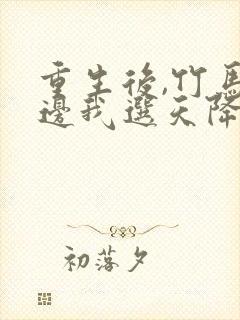 重生後,竹馬
邊我選天降
初落夕